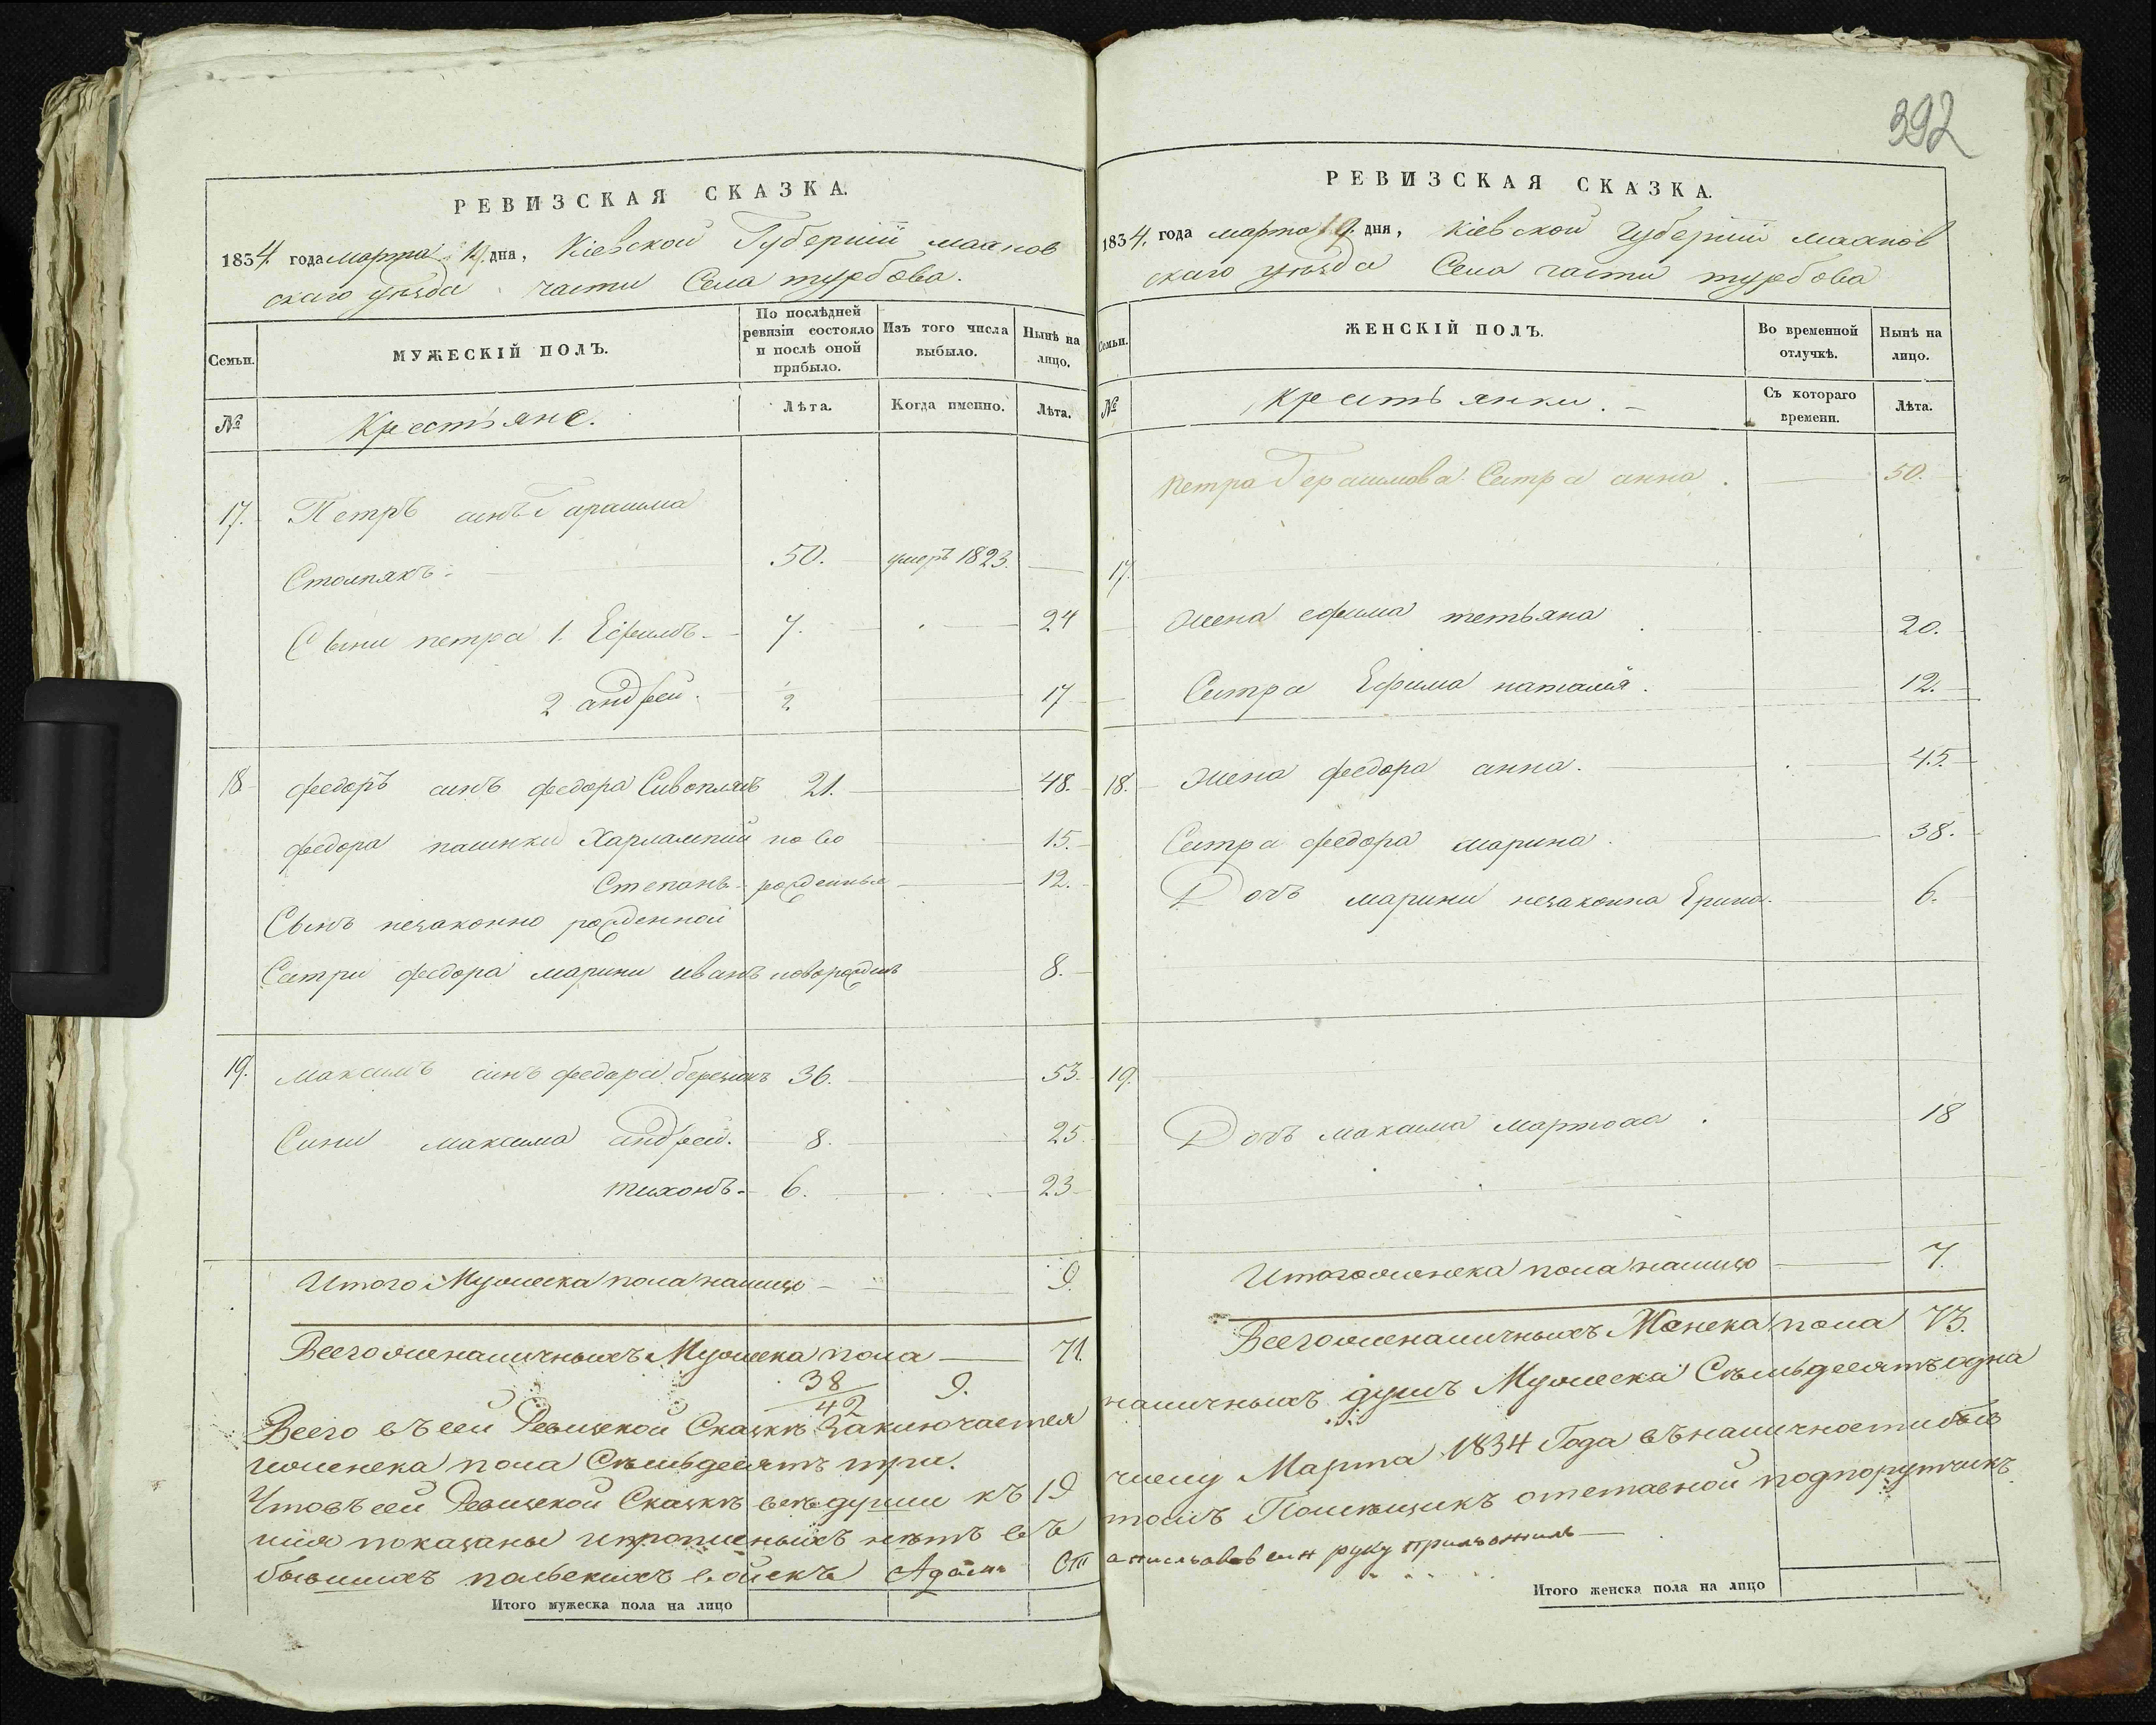 392
РЕВИЗСКАЯ СКАЗКА.
1834. года марта 19. дня, Кіевской Губерніи махнов
скаго уѣзда части Села турбова.
Семьи.
МУЖЕСКІЙ ПОЛЪ.
По послѣдней ревизіи состояло и послѣ оной прибыло.
Изъ того числа выбыло.
Нынѣ на лицо.
№
Крестьяне.
Лѣта.
Когда именно.
Лѣта.
17. Петръ синъ Гарасима
50. умеръ 1823.
Сыни петра 1. Ефимъ 7. 24
2 андрей. ½ 17
18 федоръ синъ федора 21. 48.
федора пасинки Харлампий ново 15.
Степанъ рожденныя 12.
Сынъ незаконно рожденной
Сестри федора марини иванъ новорожденъ 8.
19. максимъ синъ федора 36. 53.
Сини максима андрей. 8. 25
тихонъ 6. 23
Итого Мужеска пола налицо 9.
Всегоженаличныхъ Мужеска пола 71.
38 9.
42
Всего въ сей Ревизской Сказкѣ Заключается
иженска пола Сѣмьдесятъ три.
Чтовъ сей Ревизской Сказкѣ всѣ души къ 19
нія показаны и прописныхъ нѣтъ въ
бывшихъ польскихъ войскъ Адамъ Ст
Итого мужеска пола на лицо
РЕВИЗСКАЯ СКАЗКА.
1834. года марта 19. дня, Кіевской Губерніи махнов
скаго уѣзда Села части турбова
Семьи.
ЖЕНСКІЙ ПОЛЪ.
Во временной отлучкѣ.
Нынѣ на лицо.
№
Крестьянки.
Съ котораго времени.
Лѣта.
Петра Герасимова Сестра анна. 50.
17.
Жена ефима тетьяна 20.
Сестра Ефима наталія. 12.
18. Жена федора анна. 45.
Сестра федора марина. 38.
Дочъ марини незаконна Ерина. 6.
19.
Дочъ максима Мартоха. 18
Итогоженска пола налицо 7.
Всегоженаличныхъ Женска пола 73.
наличныхъ душъ Мужеска Сѣмьдесятъ одна
числу Марта 1834 Года въ наличности бы
томъ Помѣщикъ отставной подпорутчикъ
руку приложилъ
Итого женска пола на лицо